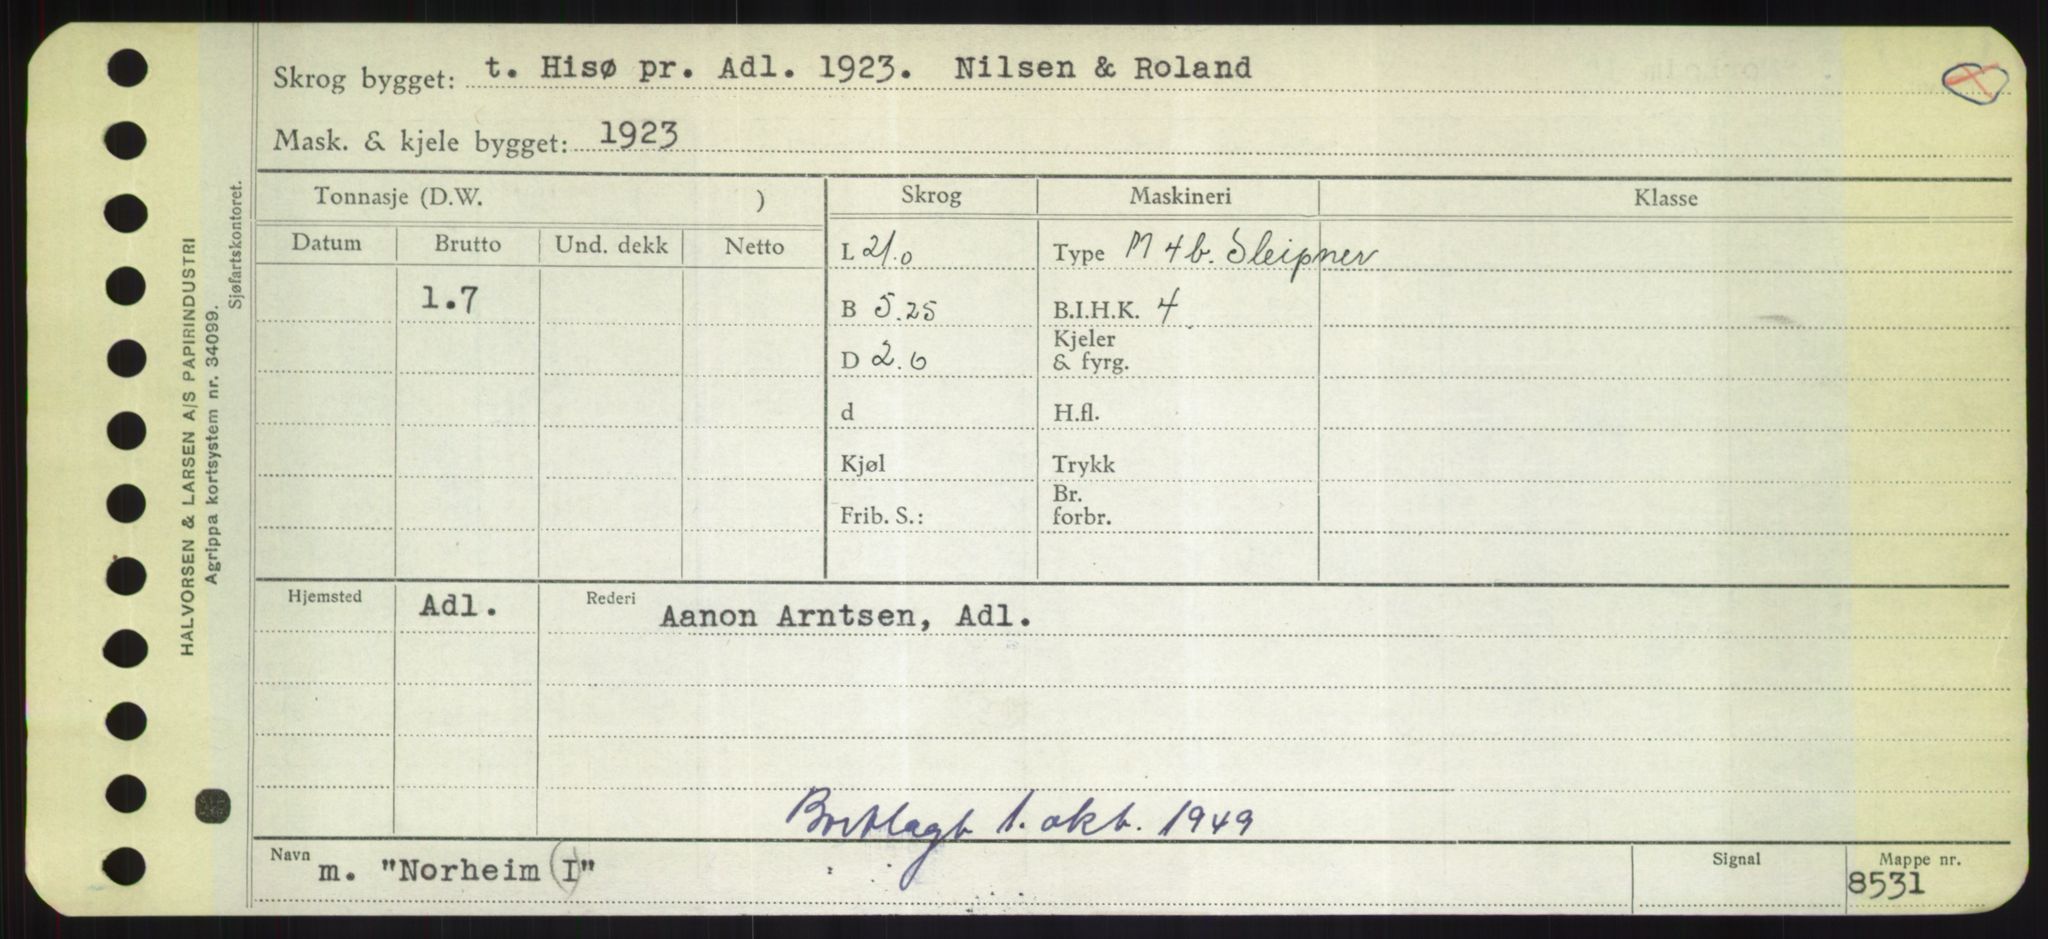 Skrog bygget: t. Hisø pr. Adl. 1923. Nilsen & Roland
Mask. & kjele bygget: 1923
Tonnasje (D.W. ) Skrog Maskineri Klasse
Datum Brutto Und. dekk Netto
L 21.0 Type M 4 b. Sleipner
1.7
B 5.25 B.I.H.K. 4
D 2.0 Kjeler & fyrg.
d H.fl.
Kjøl Trykk
Frib. S.: Br. forbr.
Hjemsted Adl. Rederi Aanon Arntsen, Adl.
Bortlagt 1. okt. 1949
Navn m. "Norheim (I)" Signal Mappe nr. 8531
HALVORSEN & LARSEN A/S PAPIRINDUSTRI
Agrippa kortsystem nr. 34099.
Sjøfartskontoret.